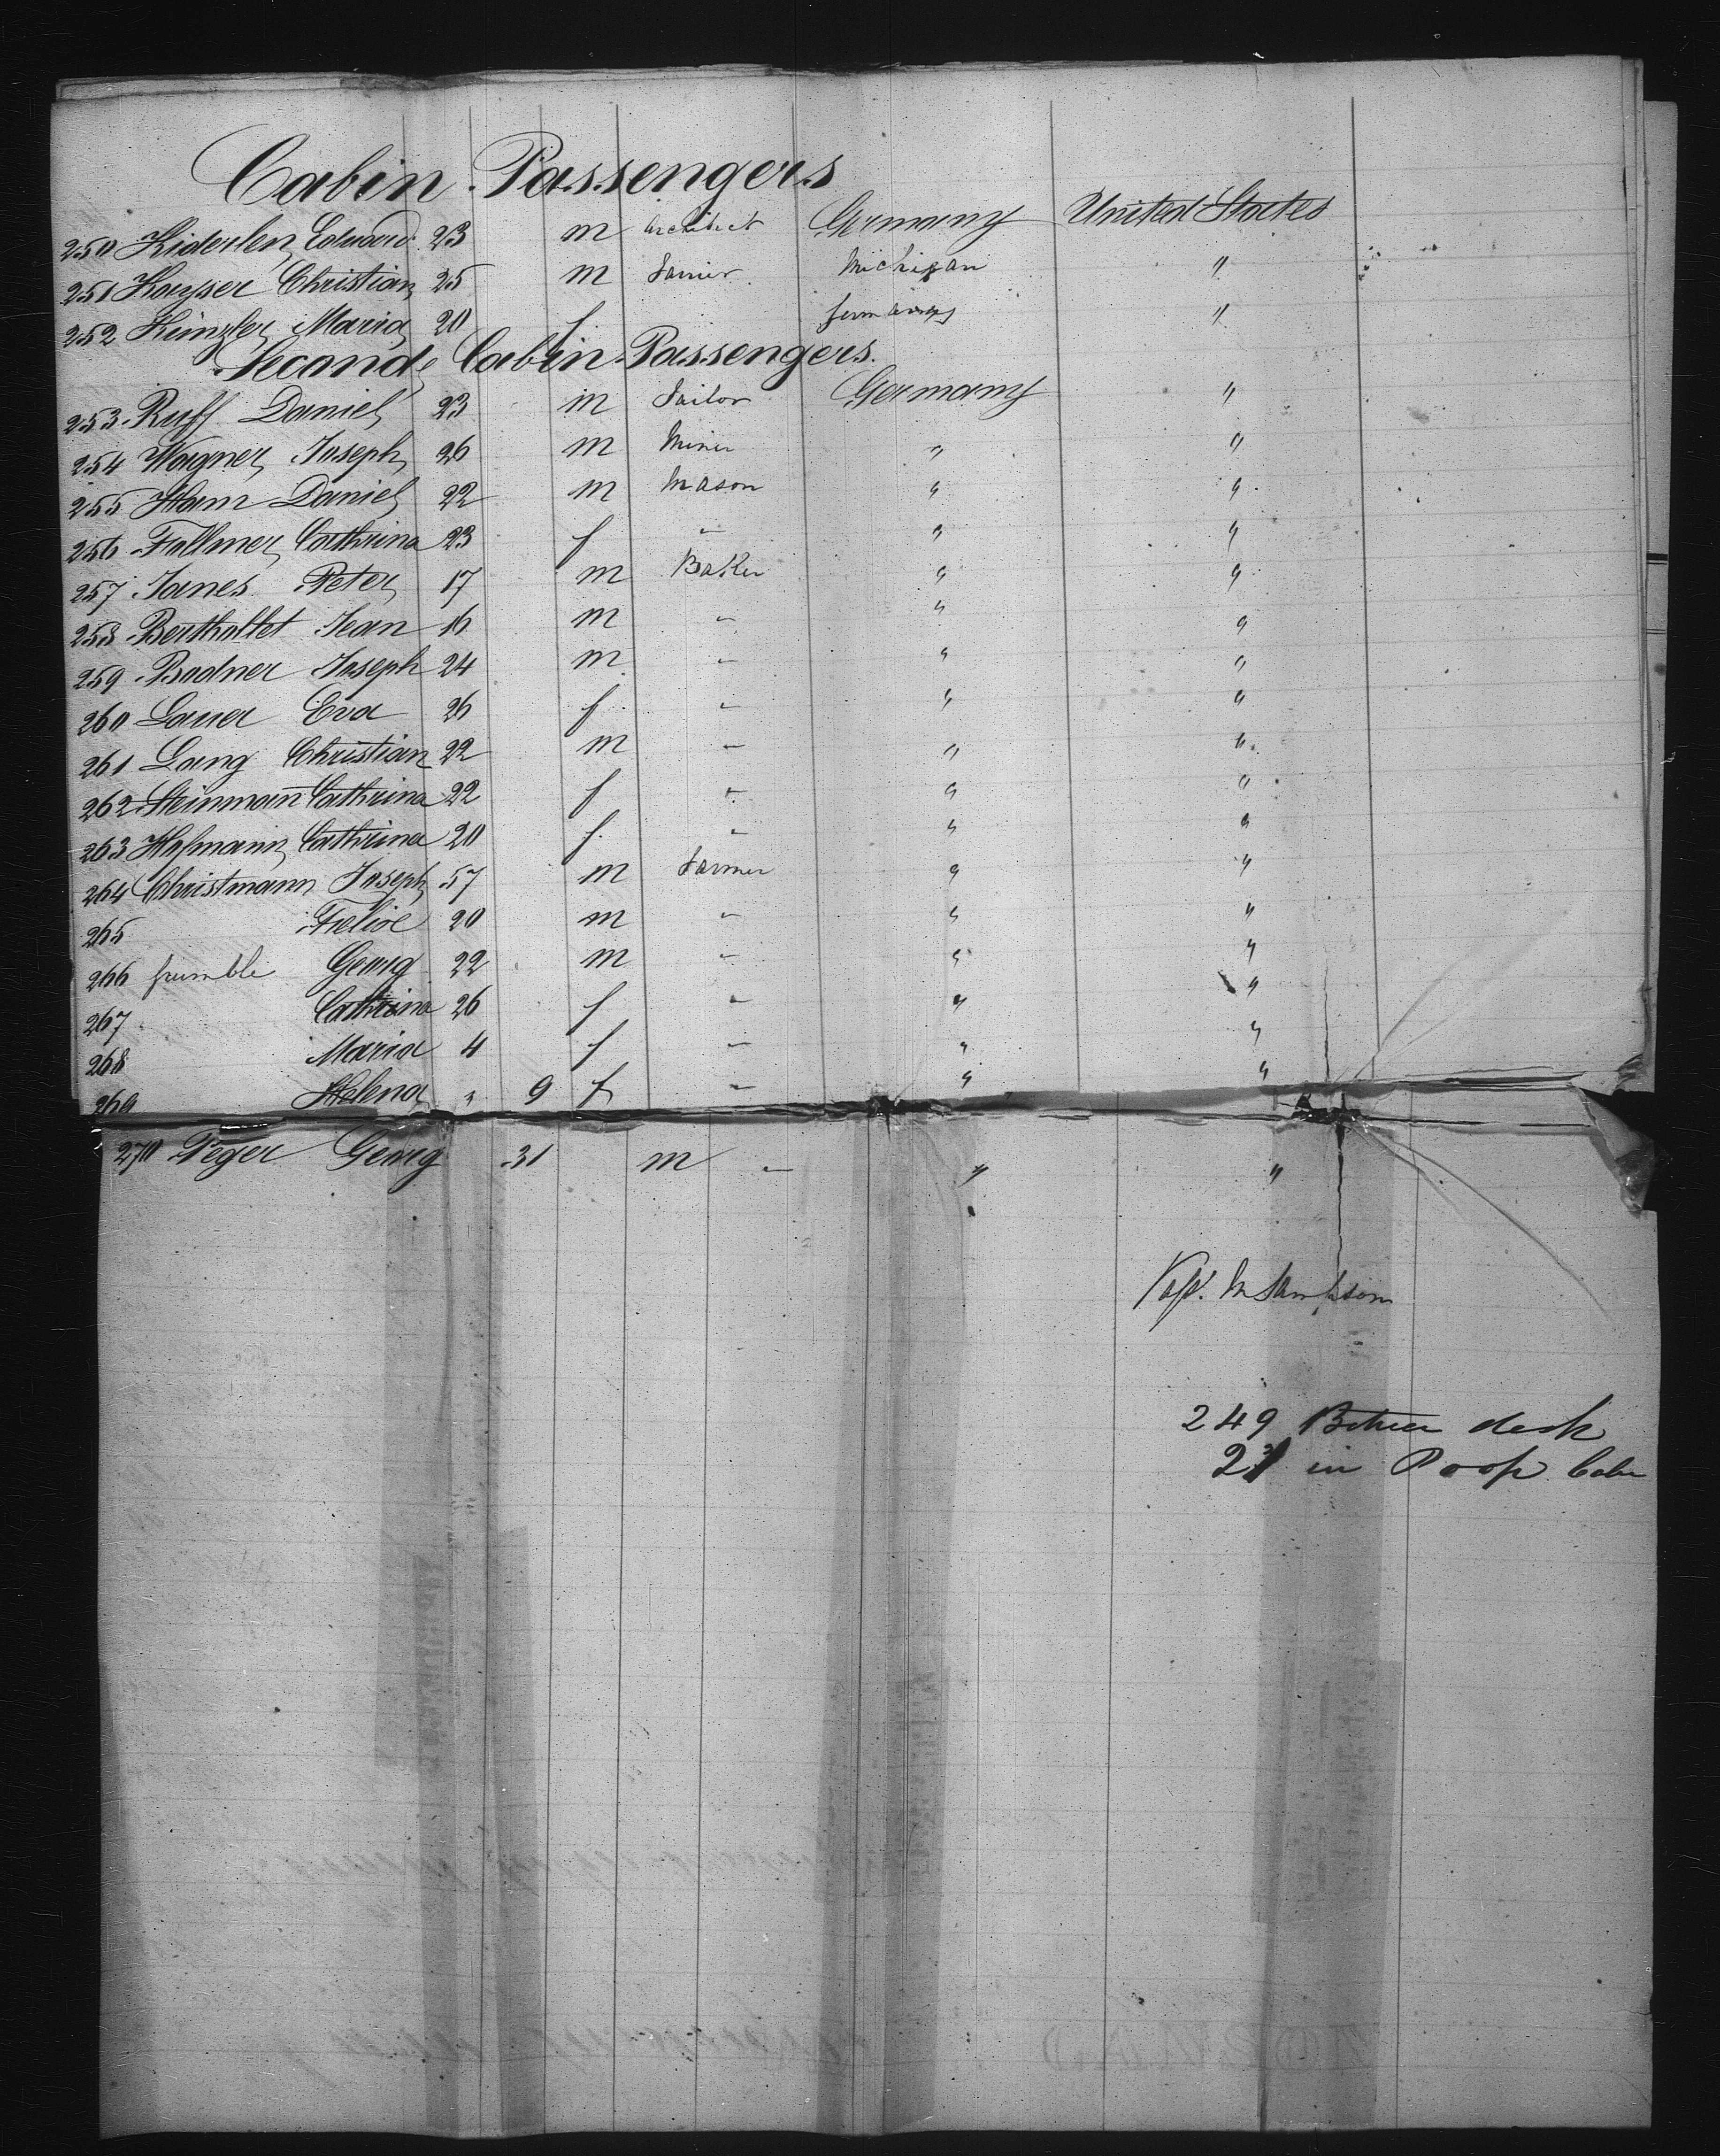 Cabin Passengers
250 Kiderlen, Eduard 23 m Architect Germany United States
251 Kayser Christian 25 m Michigan "
252 Kinzler Maria 20 f Germany "
Second Cabin Passengers.
253 Ruff Daniel 23 m Tailor Germany "
254 Wagner, Joseph 26 m Miner " "
255 Ham Daniel 22 m Mason " "
256 Follmer Cathrina 23 f " " "
257 Janes Peter 17 m Baker " "
258 Berthollet Jean 16 m " " "
259 Bodner Joseph 24 m " " "
260 Lauer Eva 26 f " " "
261 Lang Christian 22 m " " "
262 Steinmann Cathrina 22 f " " "
263 Hofmann, Cathrina 20 f " " "
264 Christmann Joseph 57 m Farmer " "
265 Felix 20 m " " "
266 Georg 22 m " " "
267 Cathrina 26 f " " "
268 Maria 4 f " " "
269 Helena " 9 f " " "
270 Peger Georg 31 m " " "
249 Between deck
21 in Poop Cabin